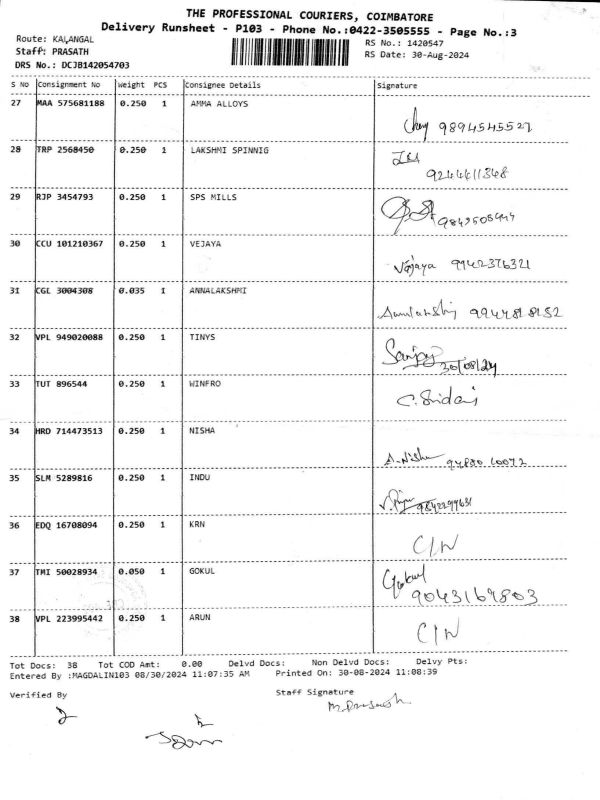 THE PROFESSIONAL COURIERS, COIMBATORE
Delivery Runsheet - P103 - Phone No.:0422-3505555 - Page No.:3
Route: KALANGAL
RS No.: 1420547
Staff: PRASATH
RS Date: 30-Aug-2024
DRS No.: DCJB142054703
S No Consignment No Weight PCS Consignee Details Signature
27 MAA 575681188 0.250 1 AMMA ALLOYS
9894545527
28 TRP 2568450 0.250 1 LAKSHMI SPINNIG
9244611348
29 RJP 3454793 0.250 1 SPS MILLS
30 CCU 101210367 0.250 1 VEJAYA
Vejaya 9942376321
31 CGL 3004308 0.035 1 ANNALAKSHMI
9944818152
32 VPL 949020088 0.250 1 TINYS
Sanjay
30/08/24
33 TUT 896544 0.250 1 WINFRO
34 HRD 714473513 0.250 1 NISHA
A.Nisha 94880 60072
35 SLM 5289816 0.250 1 INDU
36 EDQ 16708094 0.250 1 KRN
C/N
37 TMI 50028934 0.050 1 GOKUL
Gokul
9043169803
38 VPL 223995442 0.250 1 ARUN
C/N
Tot Docs: 38 Tot COD Amt: 0.00 Delvd Docs: Non Delvd Docs: Delvy Pts:
Entered By :MAGDALIN103 08/30/2024 11:07:35 AM Printed On: 30-08-2024 11:08:39
Verified By
Staff Signature
M.Prasath